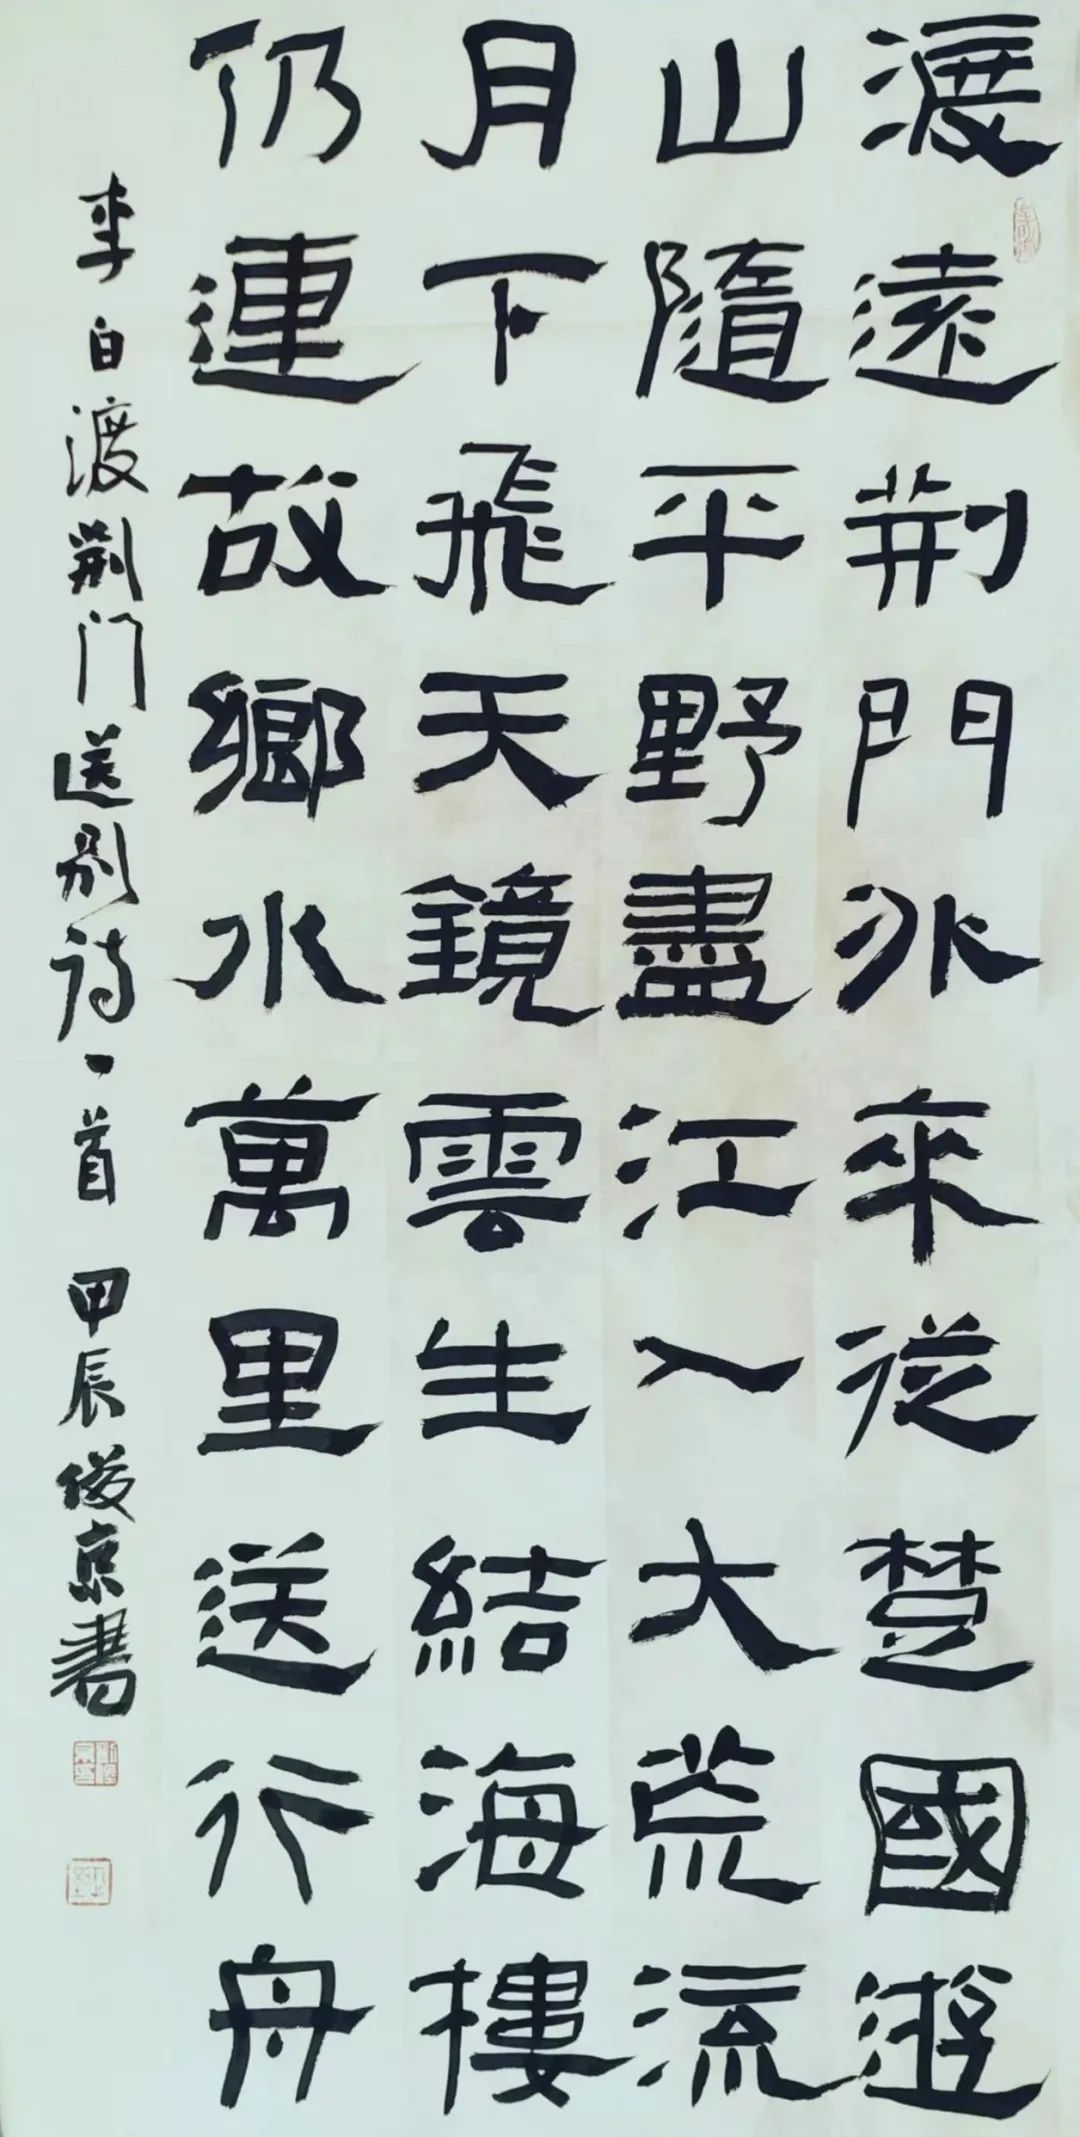 渡遠荆門外來從楚國遊
山隨平野盡江入大荒流
月下飛天鏡雲生結海樓
仍連故鄉水萬里送行舟
李白渡荆门送别诗一首 甲辰俊京書